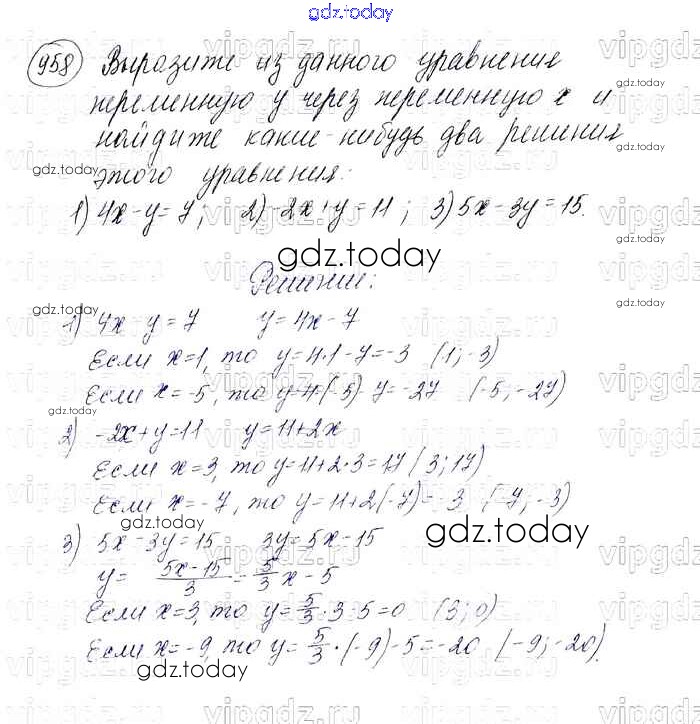 gdz.today
958 Выразите из данного уравнения
переменную y через переменную x и
найдите какие-нибудь два решения
этого уравнения:
1) 4x-y=7; 2) -2x+y=11; 3) 5x-3y=15.
gdz.today
Решение:
1) 4x-y=7 y=4x-7
Если x=1, то y=4·1-7=-3 (1;-3)
Если x=-5, то y=4·(-5)-7=-27 (-5;-27)
gdz.today
2) -2x+y=11 y=11+2x
Если x=3, то y=11+2·3=17 (3;17)
Если x=-7, то y=11+2(-7)=-3 (-7;-3)
gdz.today
3) 5x-3y=15 3y=5x-15
y= 5x-15/3 = 5/3 x-5
Если x=3, то y=5/3·3-5=0 (3;0)
Если x=-9, то y=5/3·(-9)-5=-20 (-9;-20).
gdz.today
vipgdz.ru